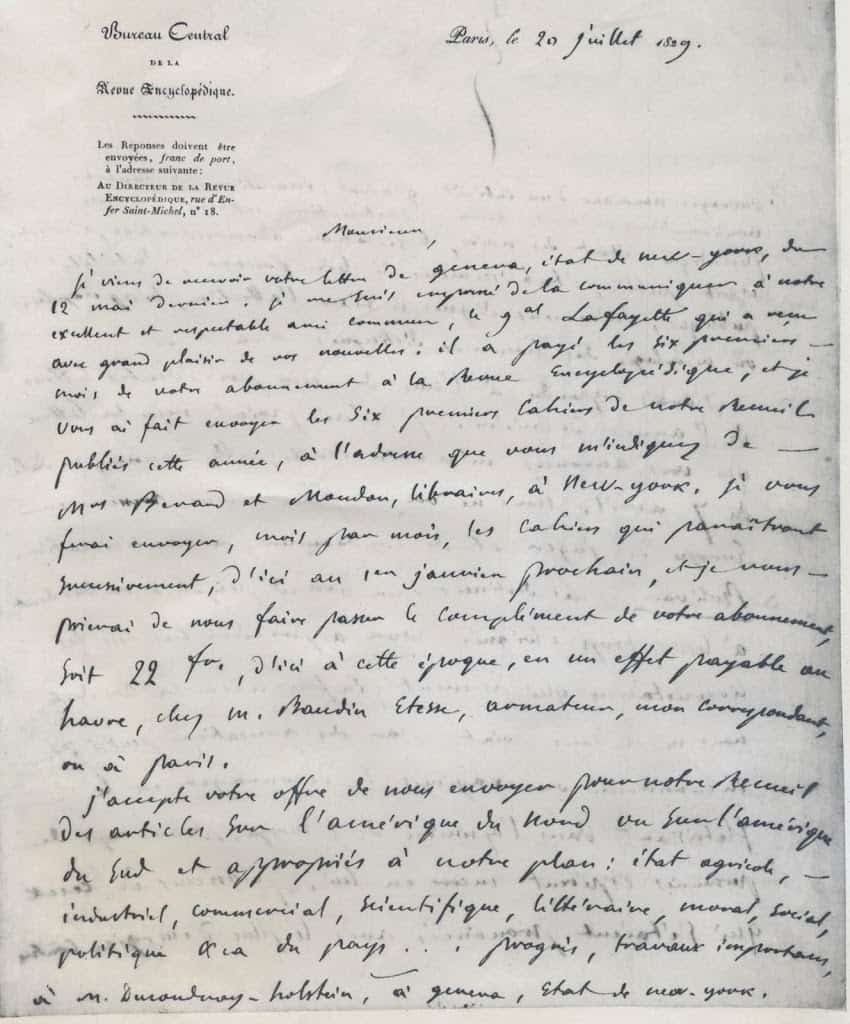 Bureau Central
DE LA
Revue Encyclopédique.
Paris, le 20 juillet 1829.
Les Reponses doivent être
envoyées, franc de port,
à l'adresse suivante:
AU DIRECTEUR DE LA REVUE
ENCYCLOPÉDIQUE, rue d'En-
fer Saint-Michel, n° 18.
Monsieur,
je viens de recevoir votre lettre de geneva, état de new-york, du
12 mai dernier. je me suis empressé de la communiquer à notre
excellent et respectable ami commun, le gal Lafayette qui a reçu
avec grand plaisir de vos nouvelles: il a payé les six premiers
mois de votre abonnement à la Revue Encyclopédique, et je
vous ai fait envoyer les six premiers Cahiers de notre Recueil
publiés cette année, à l'adresse que vous m'indiquez de —
Mrs et Mondon, libraires, à New-york. je vous
ferai envoyer, mois par mois, les cahiers qui paraîtront
successivement, d'ici au 1er janvier prochain, et je vous —
prierai de nous faire passer le complément de votre abonnement,
soit 22 fr., d'ici à cette époque, en un effet payable au
havre, chez m. Baudin Etesse, armateur, mon correspondant,
ou à paris.
j'accepte votre offre de nous envoyer pour notre Recueil
des articles sur l'amérique du Nord ou sur l'amérique
du Sud et appropriés à notre plan: état agricole, —
industriel, commercial, scientifique, littéraire, moral, social,
politique &ca du pays... progrès, travaux importans,
à M. Ducoudray-holstein, à geneva, Etat de new-york.